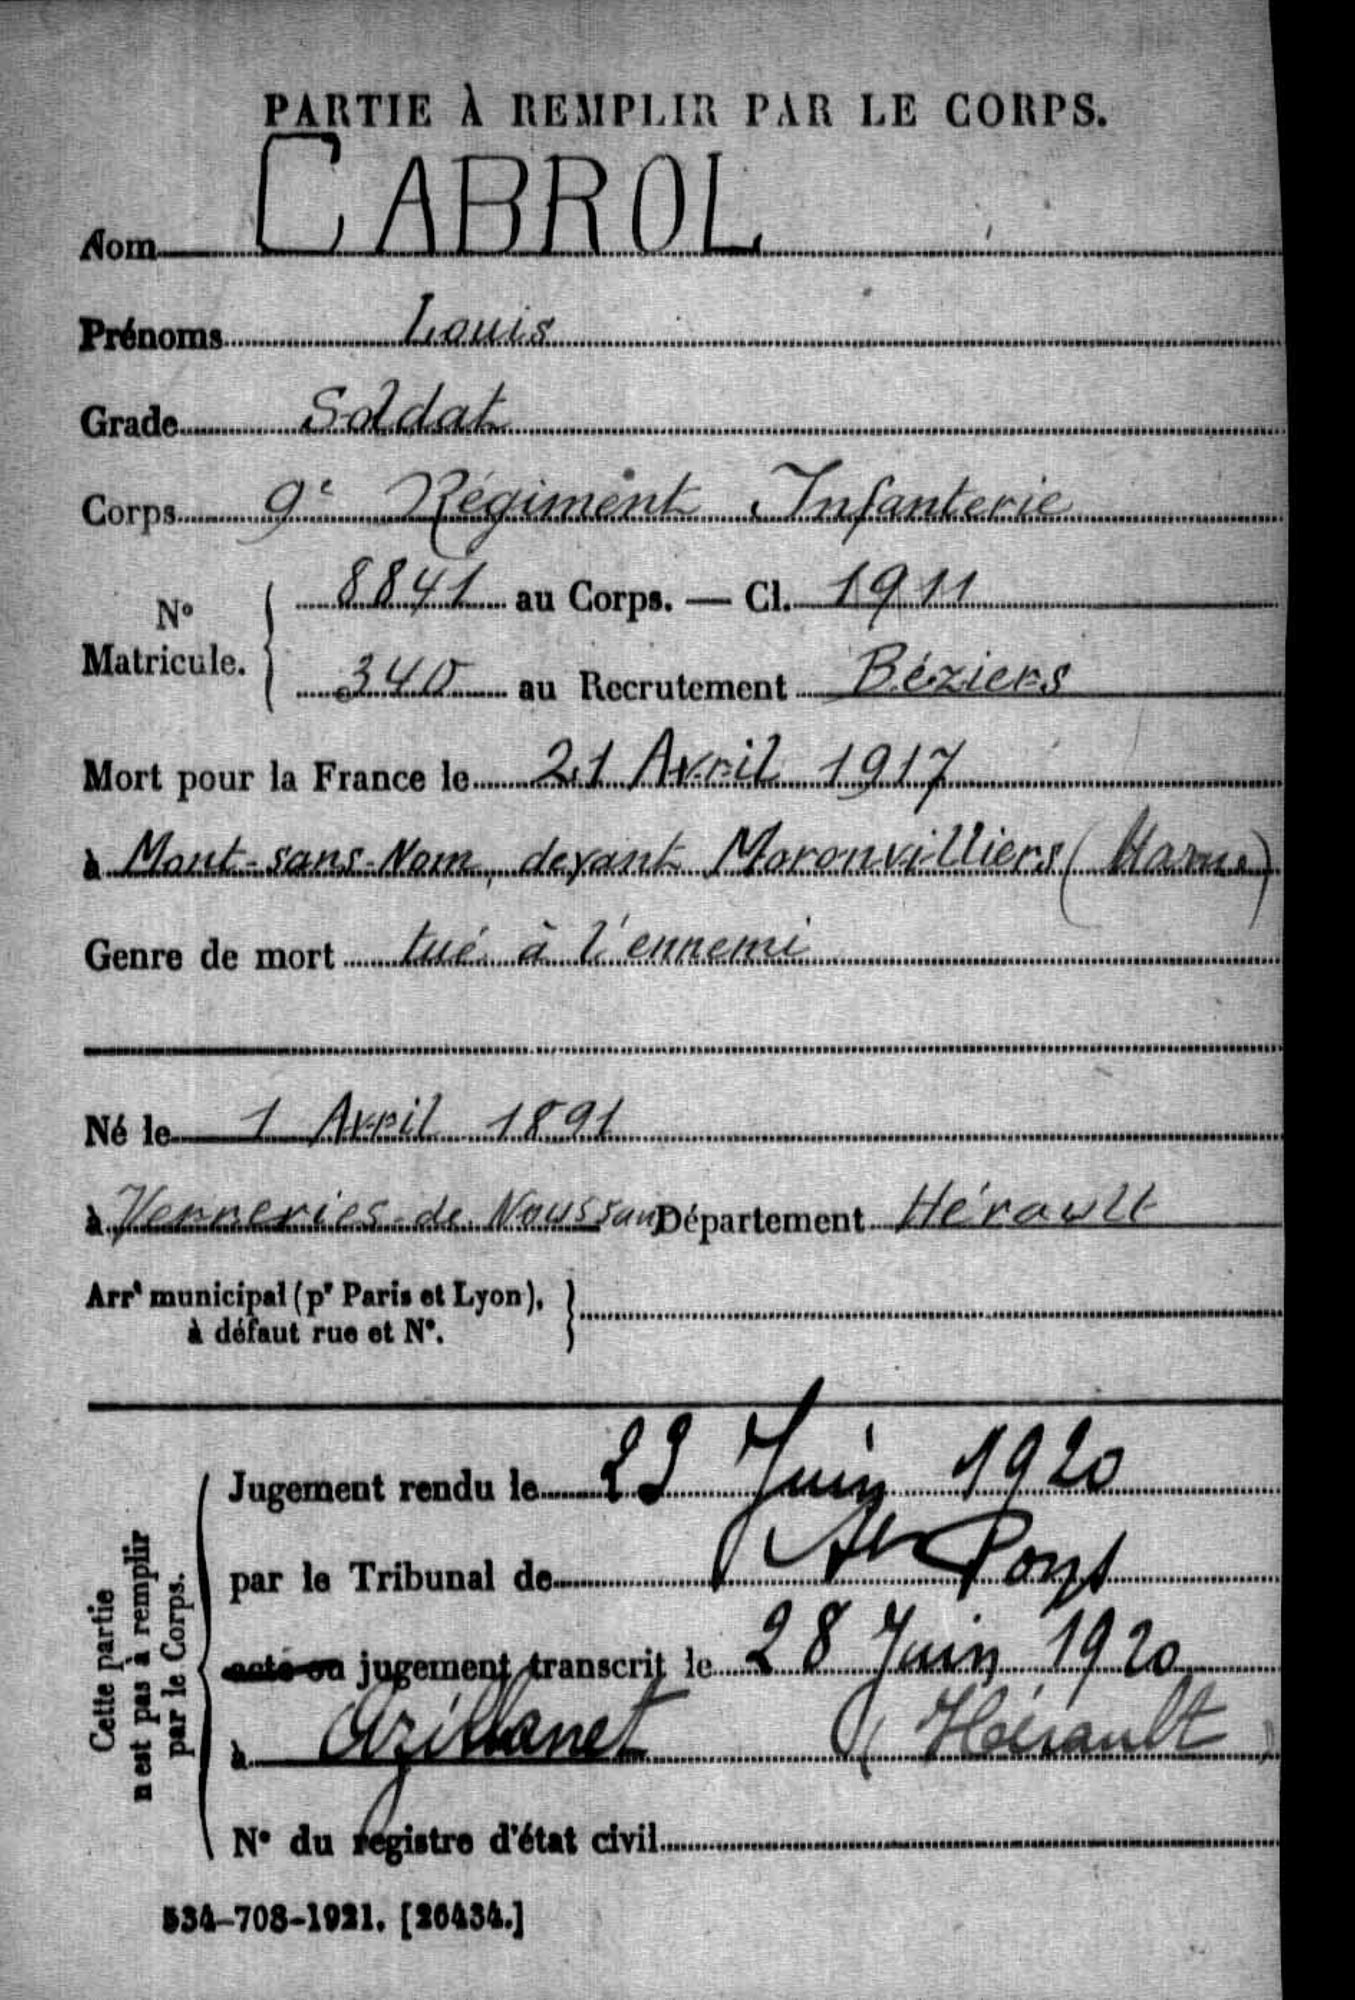 PARTIE À REMPLIR PAR LE CORPS.
Nom CABROL
Prénoms Louis
Grade Soldat
Corps 9e Régiment Infanterie
N° Matricule. 8841 au Corps. — Cl. 1911
340 au Recrutement Béziers
Mort pour la France le 21 Avril 1917
à Mont-sans-Nom, devant Moronvilliers (Marne)
Genre de mort tué à l'ennemi
Né le 1 Avril 1891
à Verreries-de Moussan Département Hérault
Arrt municipal (pr Paris et Lyon),
à défaut rue et N°.
Cette partie
n'est pas à remplir
par le Corps.
Jugement rendu le 23 Juin 1920
par le Tribunal de St Pons
acte ou jugement transcrit le 28 Juin 1920
à Azillanet (Hérault)
N° du registre d'état civil
534-708-1921. [26434.]